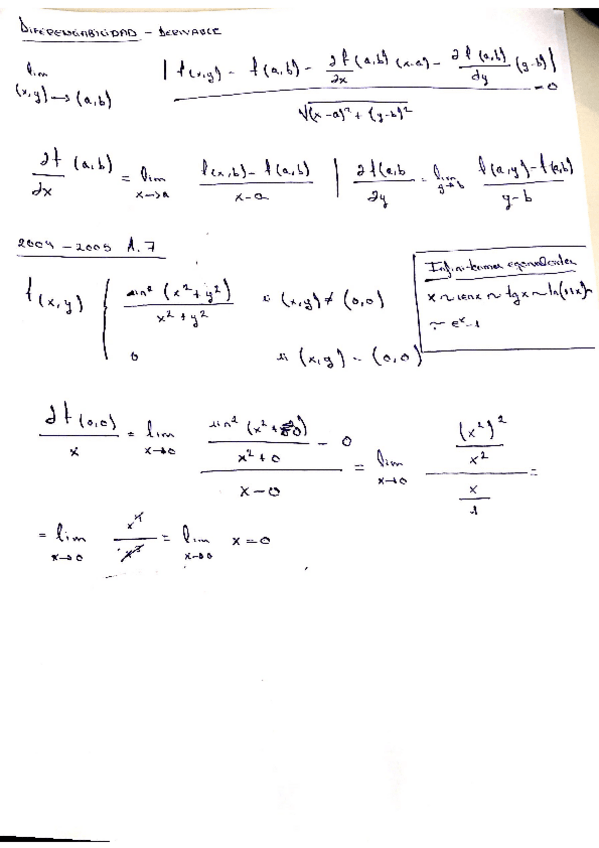 DIFERENCIABILIDAD - DERIVABLE
lim (x,y)→(a,b) |f(x,y) - f(a,b) - ∂f/∂x (a,b) (x-a) - ∂f(a,b)/dy (y-b)| / √((x-a)² + (y-b)²) = 0
∂f/dx (a,b) = lim x→a f(x,b) - f(a,b) / x-a | ∂f(a,b / ∂y = lim y→b f(a,y) - f(a,b) / y-b
2004-2005 A.7
Infinitésimos equivalentes
f(x,y) { sin² (x²+y²) / x²+y² si (x,y) ≠ (0,0)
x ~ senx ~ tgx ~ ln(1+x) ~
~ eˣ-1
0 si (x,y) = (0,0)
∂f(0,0) / x = lim x→0 (sin² (x²+0) / x²+0 - 0) / x-0 = lim x→0 ((x²)² / x²) / (x / 1) =
= lim x→0 x⁴ / x³ = lim x→0 x = 0